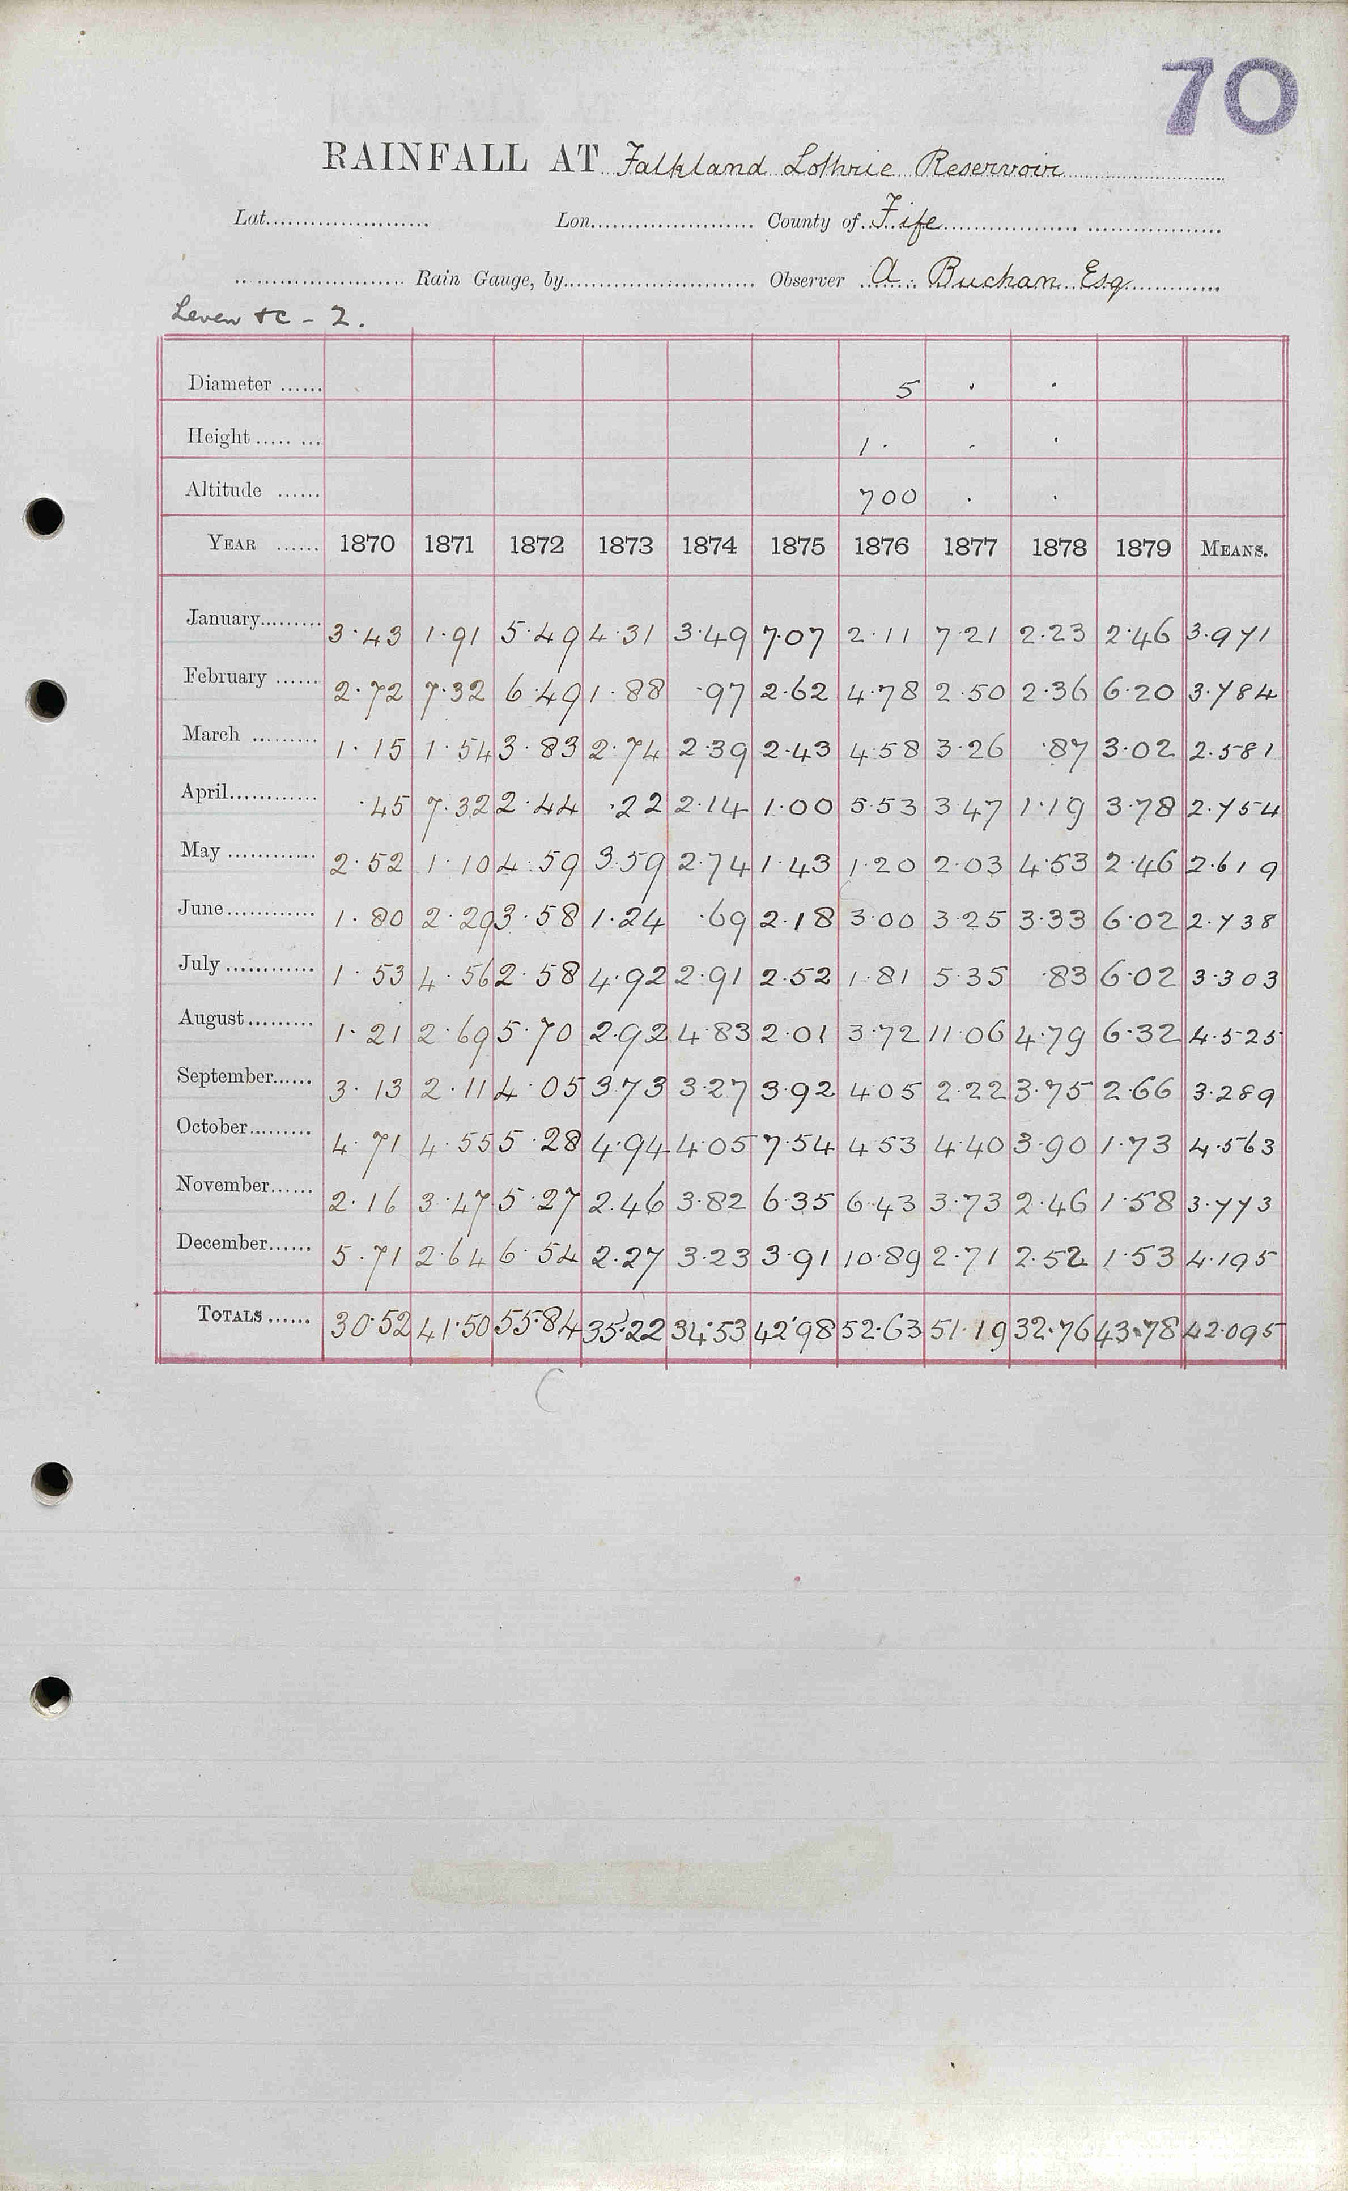 70
RAINFALL AT Falkland Lothrie Reservoir
Lat. Lon. County of Fife
Rain Gauge, by Observer A. Buchan Esq.
Leven &c - 2.
Diameter 5 . .
Height 1. . .
Altitude 700 . .
YEAR 1870 1871 1872 1873 1874 1875 1876 1877 1878 1879 MEANS.
January 3.43 1.91 5.49 4.31 3.49 7.07 2.11 7.21 2.23 2.46 3.971
February 2.72 7.32 6.49 1.88 .97 2.62 4.78 2.50 2.36 6.20 3.784
March 1.15 1.54 3.83 2.74 2.39 2.43 4.58 3.26 .87 3.02 2.581
April .45 7.32 2.44 .22 2.14 1.00 5.53 3.47 1.19 3.78 2.754
May 2.52 1.10 4.59 3.59 2.74 1.43 1.20 2.03 4.53 2.46 2.619
June 1.80 2.29 3.58 1.24 .69 2.18 3.00 3.25 3.33 6.02 2.738
July 1.53 4.56 2.58 4.92 2.91 2.52 1.81 5.35 .83 6.02 3.303
August 1.21 2.69 5.70 2.92 4.83 2.01 3.72 11.06 4.79 6.32 4.525
September 3.13 2.11 4.05 3.73 3.27 3.92 4.05 2.22 3.75 2.66 3.289
October 4.71 4.55 5.28 4.94 4.05 7.54 4.53 4.40 3.90 1.73 4.563
November 2.16 3.47 5.27 2.46 3.82 6.35 6.43 3.73 2.46 1.58 3.773
December 5.71 2.64 6.54 2.27 3.23 3.91 10.89 2.71 2.52 1.53 4.195
TOTALS 30.52 41.50 55.84 35.22 34.53 42.98 52.63 51.19 32.76 43.78 42.095